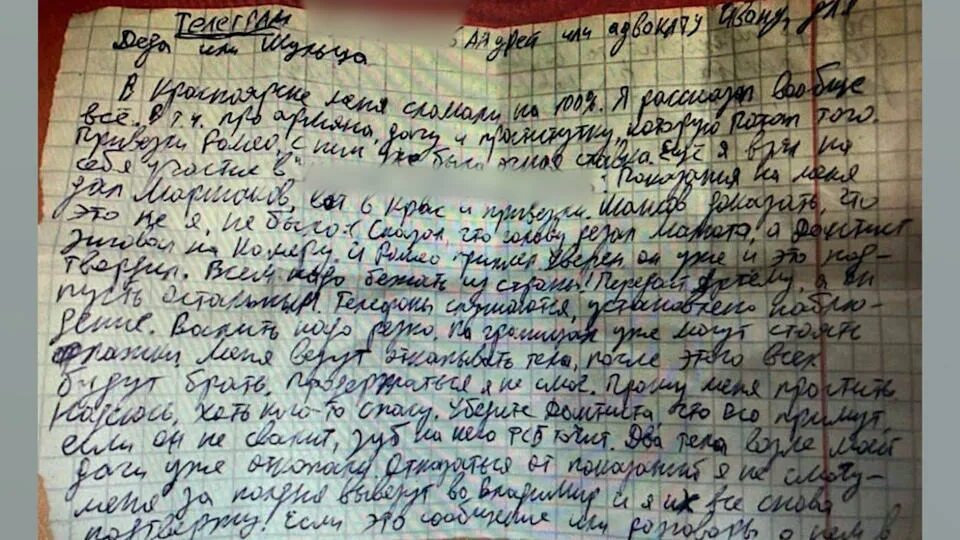 Телеграм
Андрей или адвокату Ивану, для
Деда или Шульца
В Красноярске меня сломали на 100%. Я рассказал вообще
всё. В т.ч. про армяна, дачу и проститутку, которую потом того.
Привезли Ромео, с ним уже была очная ставка. Ещё я взял на
себя участие в
Показания на меня
дал Маршаков, кот в Крас и привезли. Шансов доказать, что
это не я, не было! Сказал, что голову резал Мамота, а Дантист
зиговал на камеру. И Ромео принял, уверен он уже и это под-
твердил. Всем надо бежать из страны! Передай Артёму, а он
пусть остальным! Телефоны слушаются, установлено наблю-
дение. Валить надо резко. На границах уже могут стоять
флажки, меня ведут откапывать тела, после этого всех
будут брать. Продержаться я не смог. Прошу меня простить,
каюсь, хоть кого-то спасу. Уберите Дантиста, что его примут,
если он не свалит, зуб на него ФСБ точит. Два тела возле моей
дачи уже откопали. Отказаться от показаний я не смогу-
меня за полдня вывезут во Владимир и я их все снова
подтвержу! Если это сообщение или разговоры о нём в